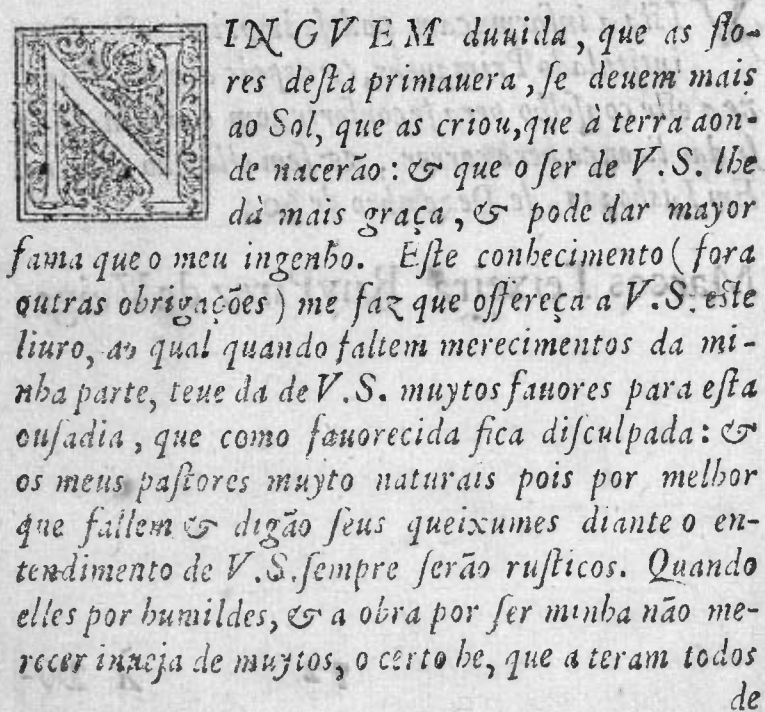 NINGVEM duuida, que as flo-
res deſta primauera, ſe deuem mais
ao Sol, que as criou, que à terra aon-
de nacerão: & que o ſer de V.S. lhe
dà mais graça, & pode dar mayor
fama que o meu ingenho. Eſte conhecimento (fora
outras obrigações) me faz que offereça a V.S. eſte
liuro, ao qual quando faltem merecimentos da mi-
nha parte, teue da de V.S. muytos fauores para eſta
ouſadia, que como fauorecida fica diſculpada: &
os meus paſtores muyto naturais pois por melhor
que fallem & digão ſeus queixumes diante o en-
tendimento de V.S. ſempre ſerão ruſticos. Quando
elles por humildes, & a obra por ſer minha não me-
recer inueja de muytos, o certo he, que a teram todos
de